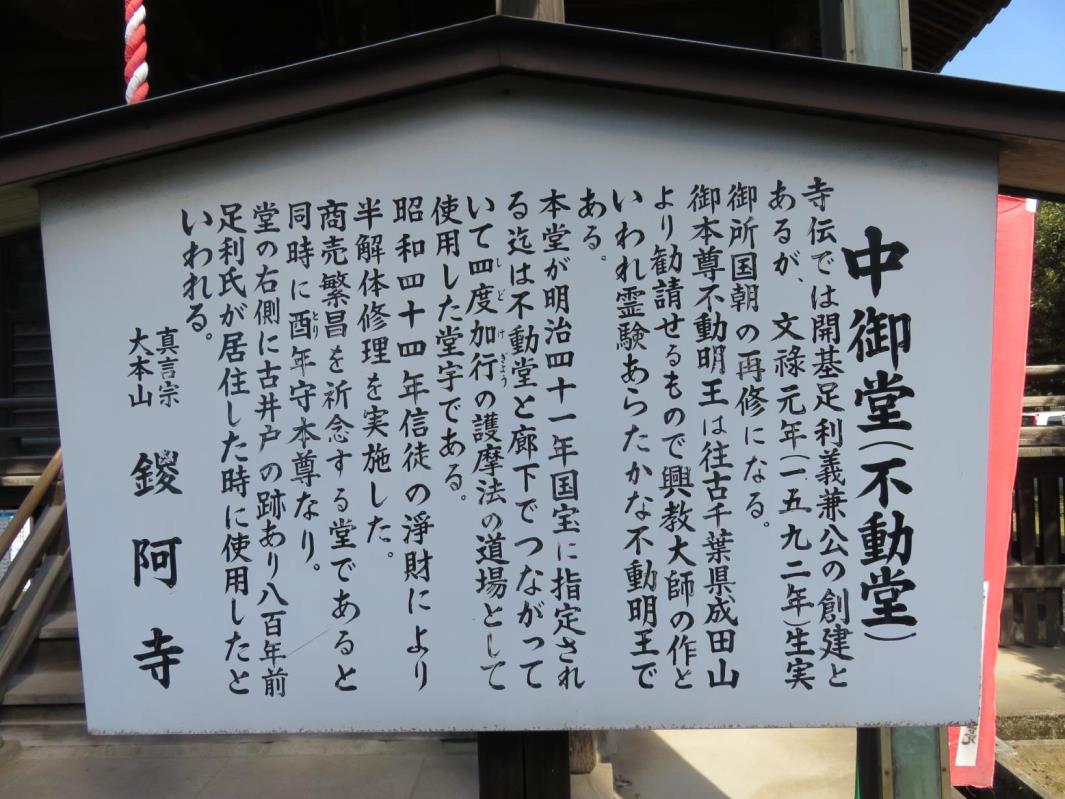 中御堂(不動堂)
寺伝では開基足利義兼公の創建と
あるが、文禄元年(一五九二年)生実
御所国朝の再修になる。
御本尊不動明王は往古千葉県成田山
より勧請せるもので興教大師の作と
いわれ霊験あらたかな不動明王で
ある。
本堂が明治四十一年国宝に指定され
る迄は不動堂と廊下でつながって
いて四度加行の護摩法の道場として
しどけぎょう
使用した堂宇である。
昭和四十四年信徒の淨財により
半解体修理を実施した。
商売繁昌を祈念する堂であると
同時に酉年守本尊なり。
とり
堂の右側に古井戸の跡あり八百年前
足利氏が居住した時に使用したと
いわれる。
真言宗
大本山
鑁阿寺